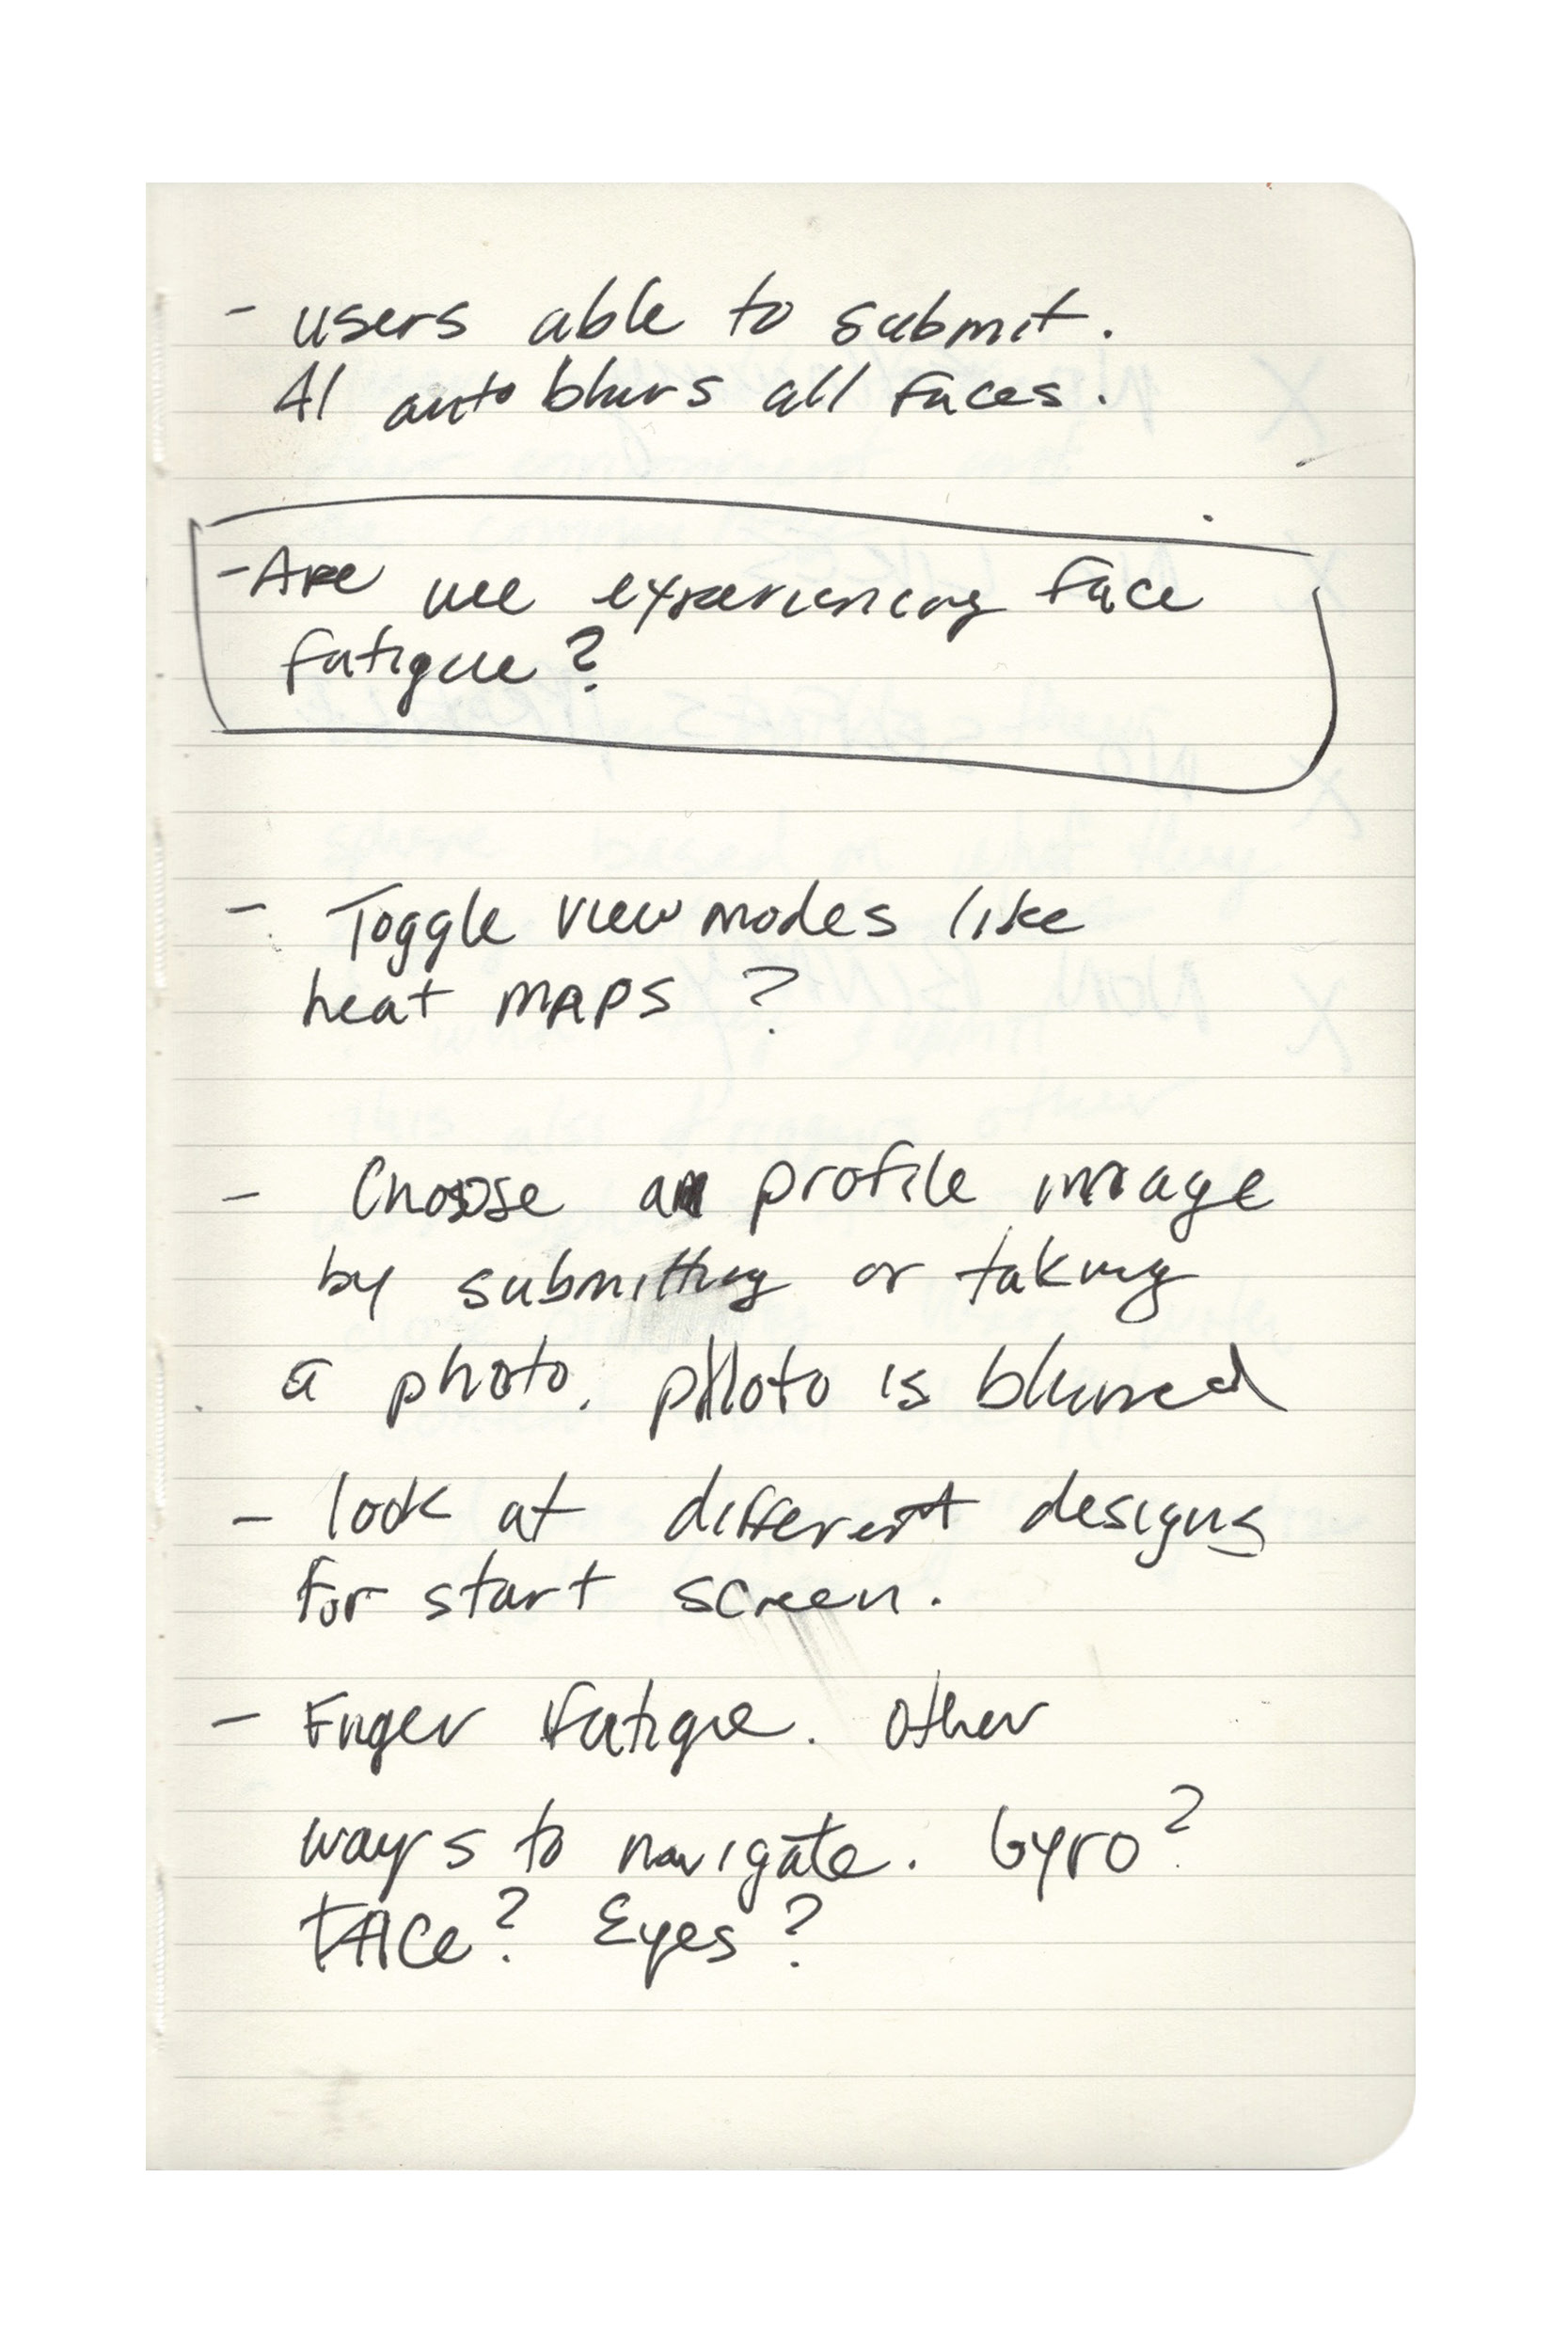 - users able to submit.
AI auto blurs all faces.
- Are we experiencing face
fatigue?
- Toggle view modes like
heat MAPS ?
- Choose a profile image
by submitting or taking
a photo. photo is blurred
- look at different designs
for start screen.
- Finger Fatigue. Other
ways to navigate. Gyro?
FACe? Eyes?